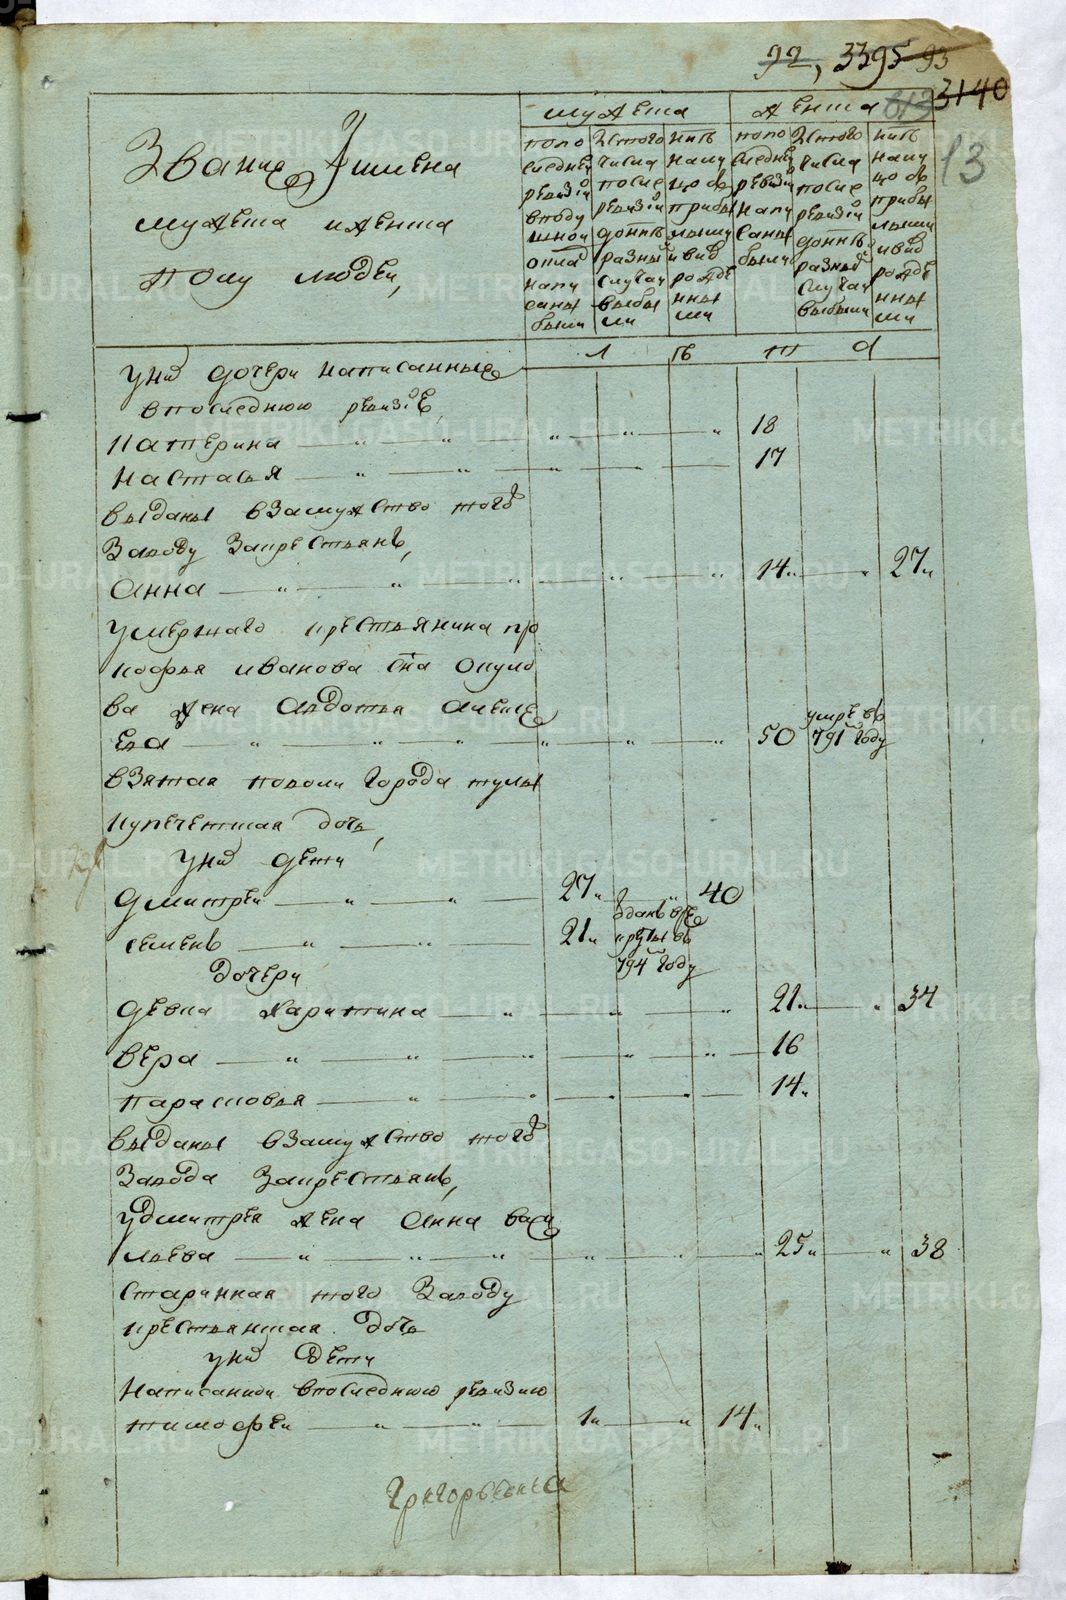 92, 3395 93
3140
813
13
Звание Имена
мужеска иженска
полу людей,
мужеска
женска
попо
следней
ревизии
вподу
шной
оклад
напи
саны
были
Изтого
числа
после
ревизии
донынѣ
разный
случаи
выбы
ли
нынѣ
на лицо
съ
прибы
лыми
ивнов
рожде
нны
ми
попо
следней
ревизии
напи
саны
были
Изтого
числа
после
ревизии
донынѣ
разный
случаи
выбыли
нынѣ
на лицо
съ
прибы
лыми
ивнов
рожде
нны
ми
л ѣ т а
уних дочери написанные
впоследнюю ревизию,
Катерина — „ — „ — „ — „ — „ 18
Настасья — „ — „ — „ — „ — 17
выданы взамужство того
Заводу Закрестьянъ,
Анна — „ — „ — „ — „ — „ 14„ — „ 27„
умершаго крестьянина про
кофья иванова сна окуло
ва жена Авдотья Алексе
ева — „ — „ — „ — „ — „ — „ 50 умре въ 791 году
взятая поволи города тулы
купеческая дочь,
уних дети
Дмитрей — „ — „ — 27„ „ 40
семенъ — „ — 21„ зданъ вре круты въ 794 году
Дочери
девка Харитина — „ — „ — „ 21„ — „ 34
вера — „ — „ — „ — „ — „ — 16
парасковья — „ — „ — „ — 14„
выданы взамужство того
Завода Закрестьянъ,
удмитрея жена Анна васи
льева — „ — „ — „ — „ — „ — „ 25„ — „ 38
старинная того Заводу
крестьянская дочь
уних дети
написанной впоследнюю ревизию
тимофей „ — „ — 1„ — „ 14„
METRIKI.GASO-URAL.RU